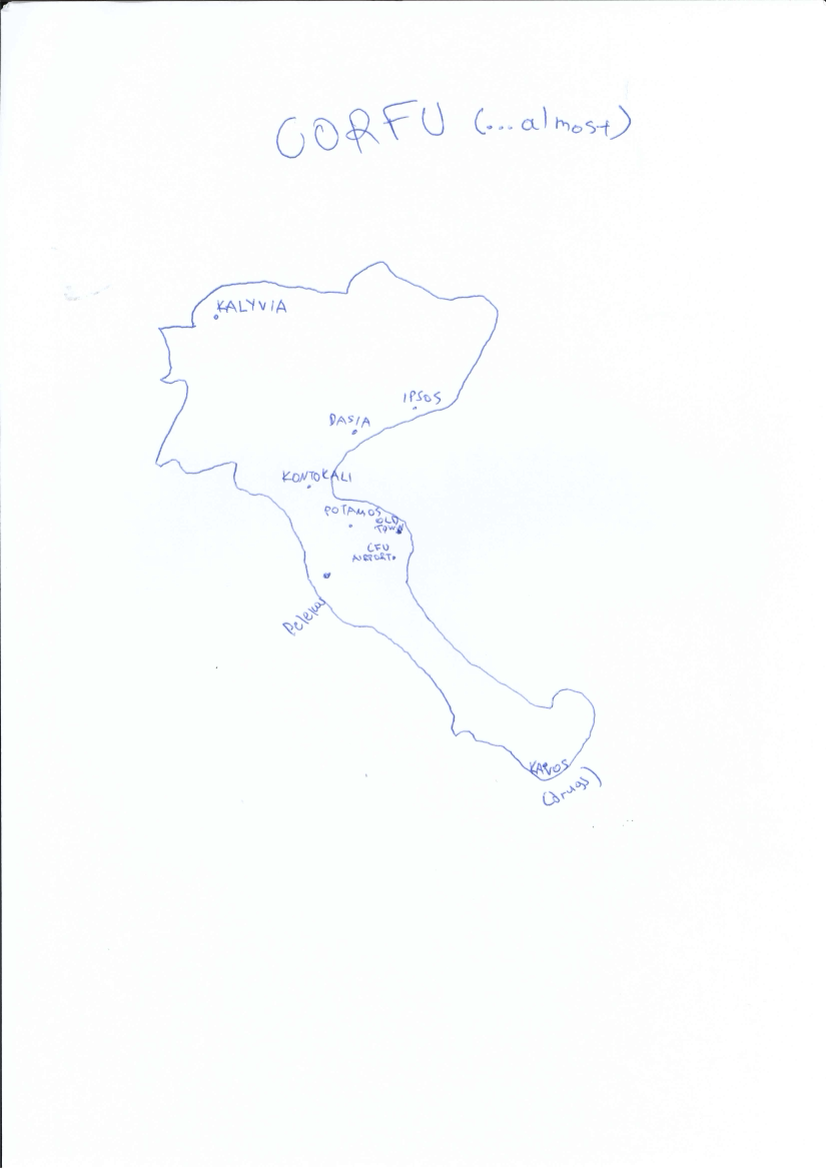 CORFU (...almost)
KALYVIA
IPSOS
DASIA
KONTOKALI
POTAMOS
OLD
TOWN
CFU
AIRPORT
Pelekas
KAVOS
(drugs)